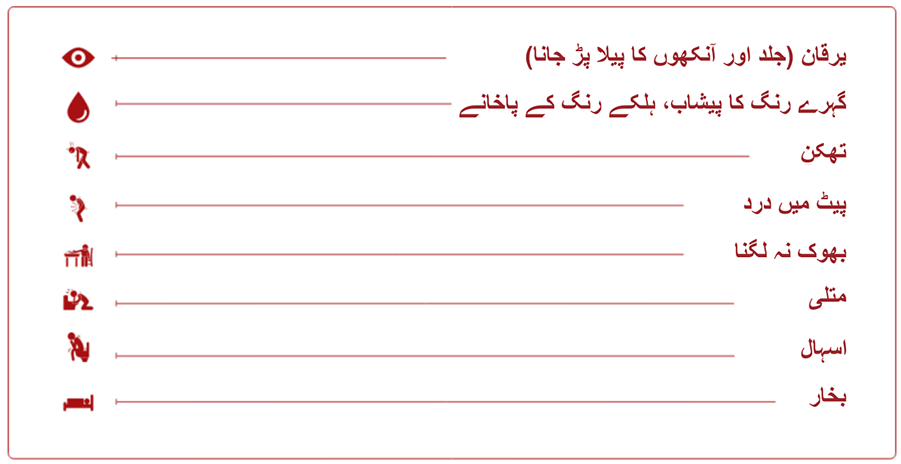 یرقان (جلد اور آنکھوں کا پیلا پڑ جانا)
گہرے رنگ کا پیشاب، ہلکے رنگ کے پاخانے
تھکن
پیٹ میں درد
بھوک نہ لگنا
متلی
اسہال
بخار